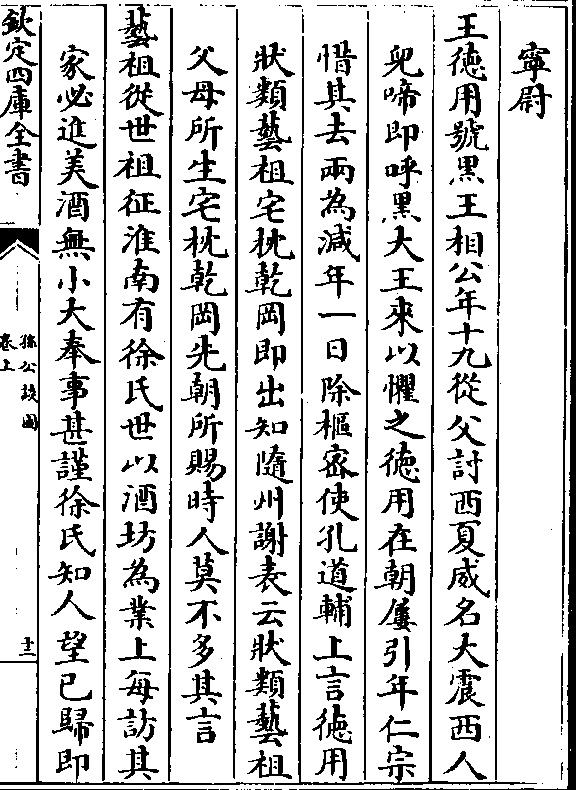 寜尉
王徳用號黒王相公年十九從父討西夏威名大震西人
兒啼即呼黒大王來以懼之徳用在朝屢引年仁宗
惜其去兩為減年一日除樞宻使孔道輔上言徳用
狀類藝祖宅枕乾岡即出知隨州謝表云狀類藝祖
父母所生宅枕乾岡先朝所賜時人莫不多其言
藝祖從世祖征淮南有徐氏世以酒坊為業上每訪其
家必進美酒無小大奉事甚謹徐氏知人望已歸即
欽定四庫全書
孫公談圃
卷上
十二